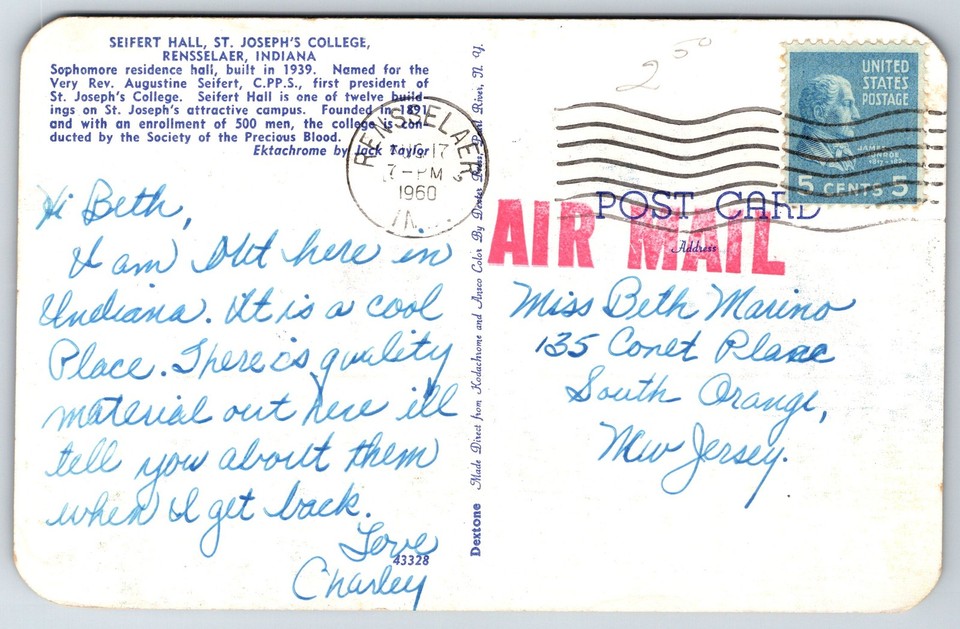 SEIFERT HALL, ST. JOSEPH'S COLLEGE,
RENSSELAER, INDIANA
Sophomore residence hall, built in 1939. Named for the
Very Rev. Augustine Seifert, C.PP.S., first president of
St. Joseph's College. Seifert Hall is one of twelve build-
ings on St. Joseph's attractive campus. Founded in 1891
and with an enrollment of 500 men, the college is con-
ducted by the Society of the Precious Blood.
Ektachrome by Jack Taylor
Hi Beth,
I am Out here in
Indiana. It is a cool
Place. There is quality
material out here ill
tell you about them
when I get back.
Love
Charley
43328
Dextone Made Direct from Kodachrome and Ansco Color By Dexter Press, Pearl River, N. Y.
RENSSELAER
17
7-PM
1960
IN.
2 50
UNITED
STATES
POSTAGE
JAMES
MONROE
5 CENTS 5
POST CARD
Address
AIR MAIL
Miss Beth Marino
135 Conet Place
South Orange,
New Jersey.